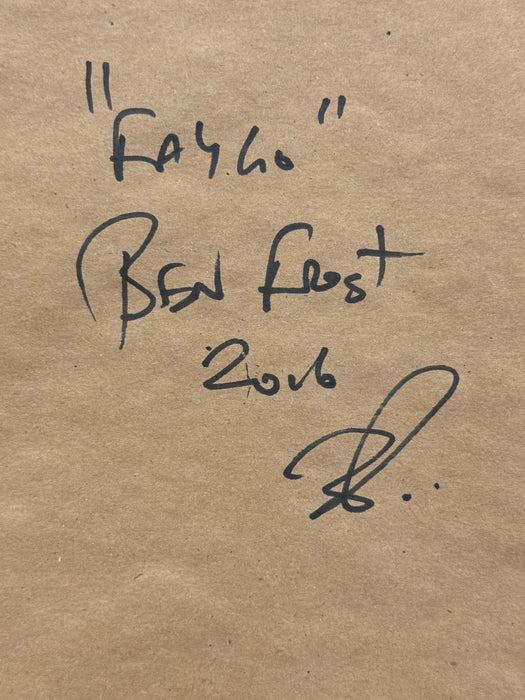 "FAYGO"
BEN FROST
2016